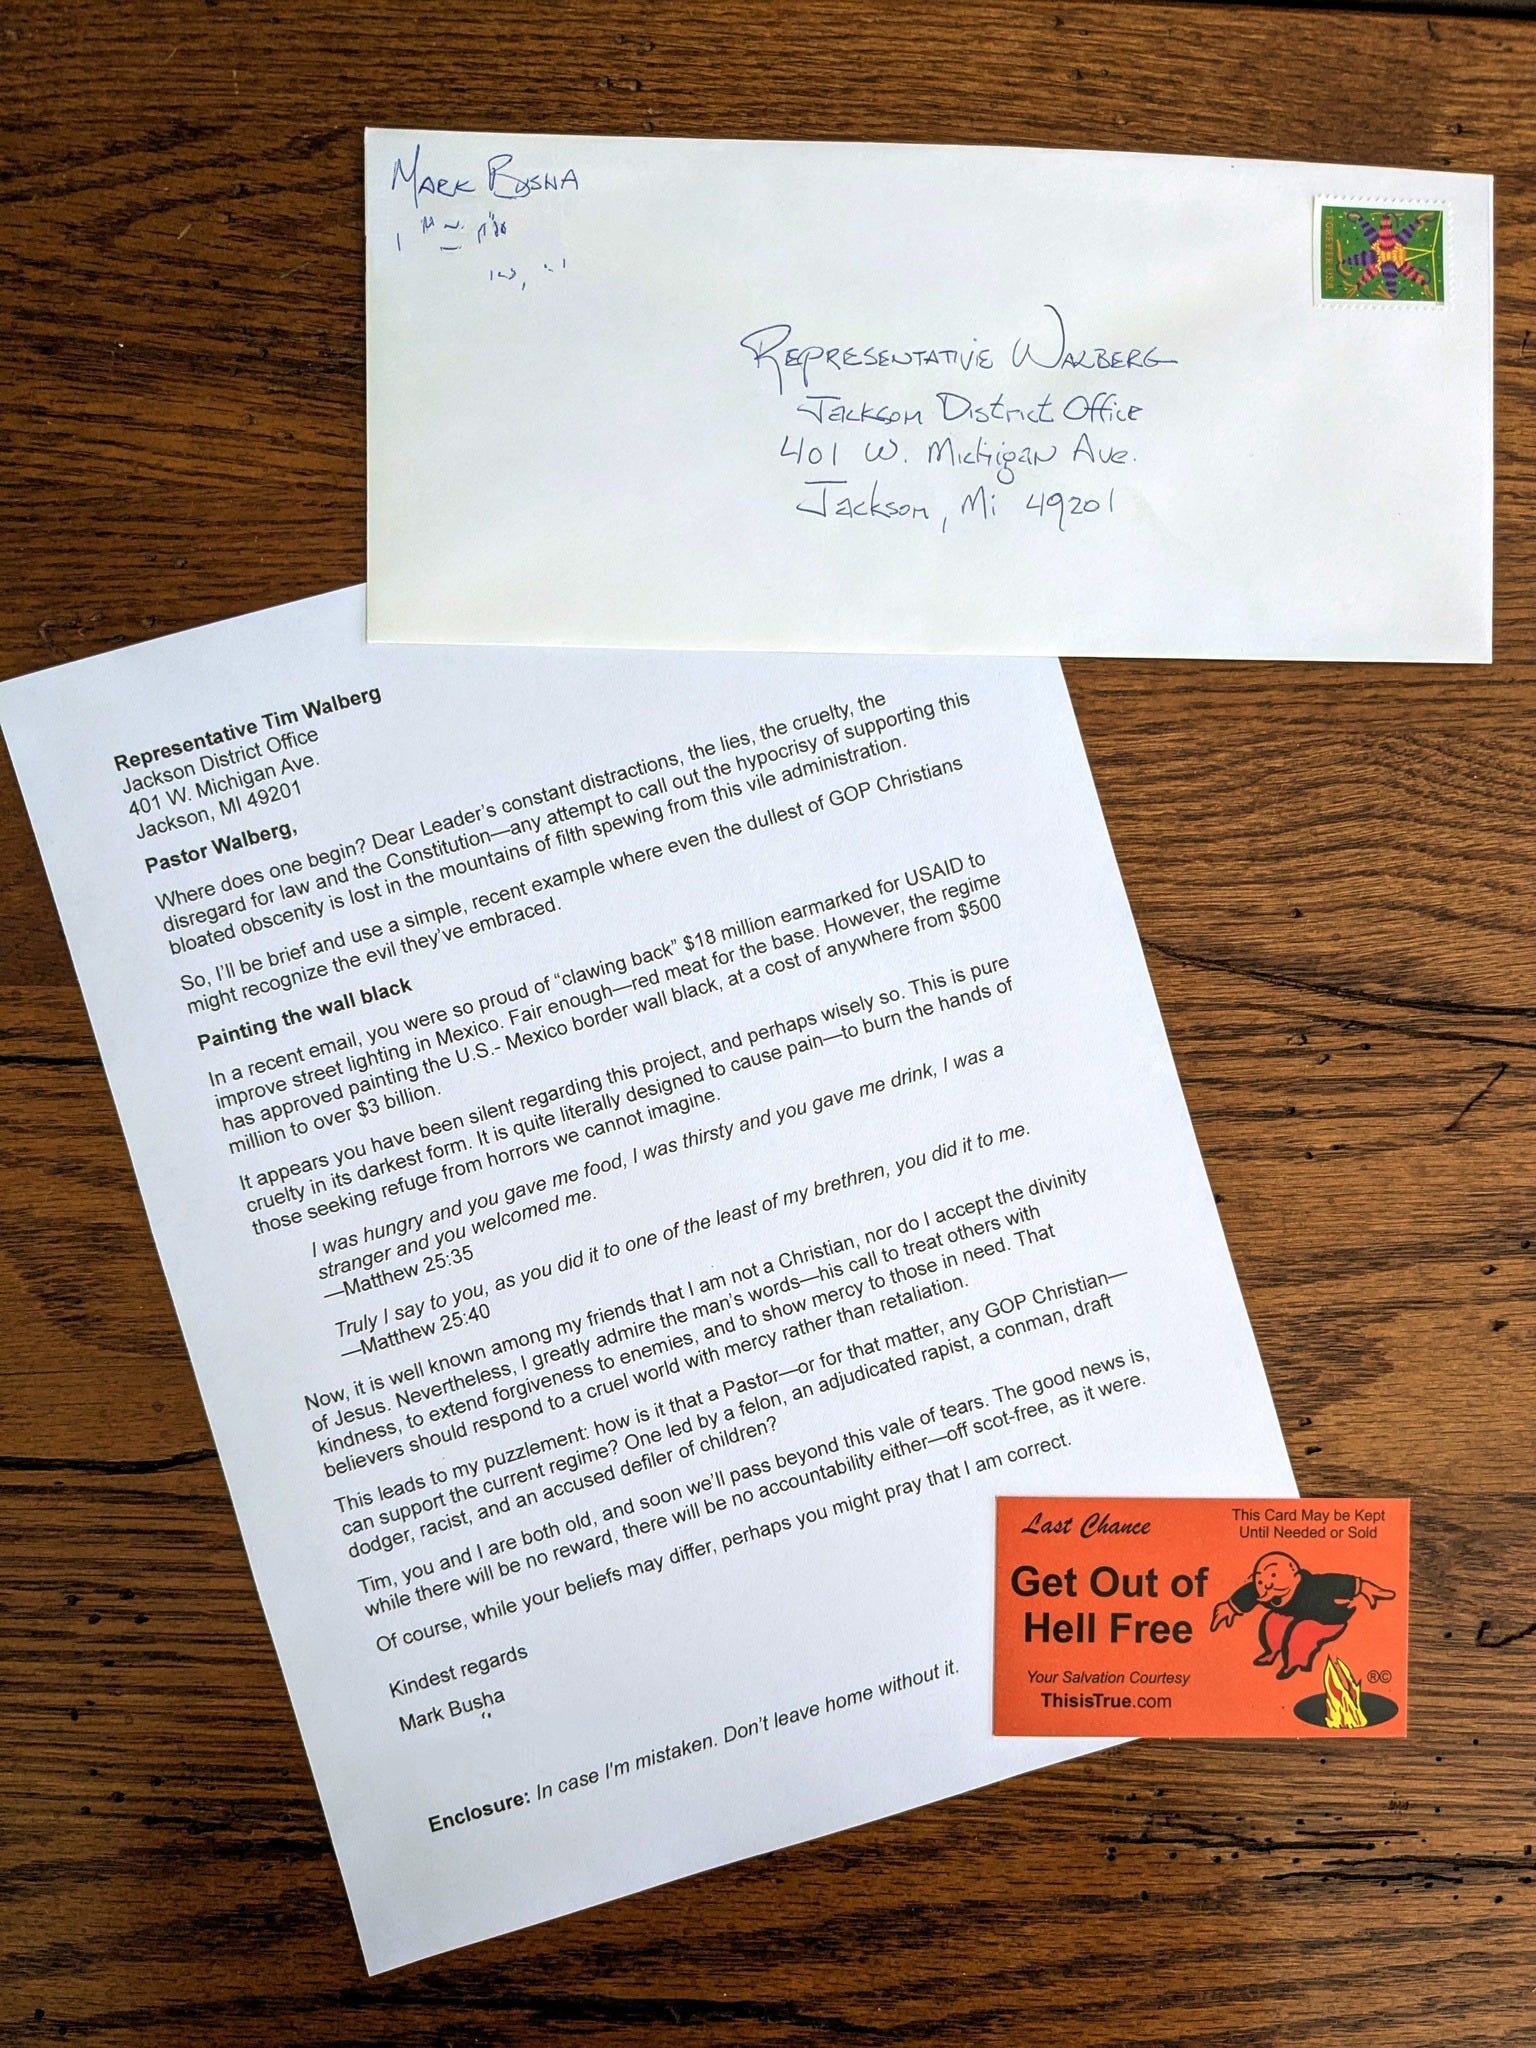 MARK BUSHA
REPRESENTATIVE WALBERG
Jackson District Office
401 W. Michigan Ave.
Jackson, Mi 49201
FOREVER USA
Representative Tim Walberg
Jackson District Office
401 W. Michigan Ave.
Jackson, MI 49201
Pastor Walberg,
Where does one begin? Dear Leader's constant distractions, the lies, the cruelty, the
disregard for law and the Constitution—any attempt to call out the hypocrisy of supporting this
bloated obscenity is lost in the mountains of filth spewing from this vile administration.
So, I'll be brief and use a simple, recent example where even the dullest of GOP Christians
might recognize the evil they've embraced.
Painting the wall black
In a recent email, you were so proud of “clawing back” $18 million earmarked for USAID to
improve street lighting in Mexico. Fair enough—red meat for the base. However, the regime
has approved painting the U.S.- Mexico border wall black, at a cost of anywhere from $500
million to over $3 billion.
It appears you have been silent regarding this project, and perhaps wisely so. This is pure
cruelty in its darkest form. It is quite literally designed to cause pain—to burn the hands of
those seeking refuge from horrors we cannot imagine.
I was hungry and you gave me food, I was thirsty and you gave me drink, I was a
stranger and you welcomed me.
—Matthew 25:35
Truly I say to you, as you did it to one of the least of my brethren, you did it to me.
—Matthew 25:40
Now, it is well known among my friends that I am not a Christian, nor do I accept the divinity
of Jesus. Nevertheless, I greatly admire the man's words—his call to treat others with
kindness, to extend forgiveness to enemies, and to show mercy to those in need. That
believers should respond to a cruel world with mercy rather than retaliation.
This leads to my puzzlement: how is it that a Pastor—or for that matter, any GOP Christian—
can support the current regime? One led by a felon, an adjudicated rapist, a conman, draft
dodger, racist, and an accused defiler of children?
Tim, you and I are both old, and soon we'll pass beyond this vale of tears. The good news is,
while there will be no reward, there will be no accountability either—off scot-free, as it were.
Of course, while your beliefs may differ, perhaps you might pray that I am correct.
Kindest regards
Mark Busha
Enclosure: In case I'm mistaken. Don't leave home without it.
Last Chance
This Card May be Kept
Until Needed or Sold
Get Out of
Hell Free
Your Salvation Courtesy
ThisisTrue.com
®©